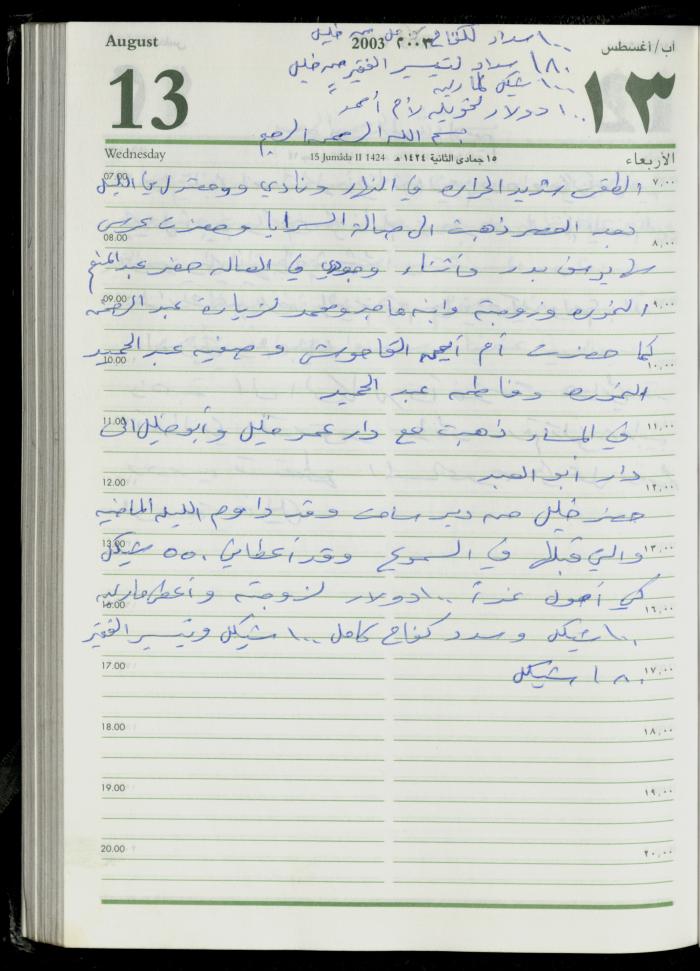 ١٠٠ سداد لكفاح كامل من خليل
August 2003 ٢٠٠٣ آب/أغسطس
١٨٠ سداد لتيسير الفقير من خليل
١٠٠ شيكل لمارية
13 ١٣
١٠٠ دولار تحويلة لأم أحمد
بسم الله الرحمن الرحيم
Wednesday 15 Jumâda II 1424 ١٥ جمادى الثانية ١٤٢٤ هـ الأربعاء
07.00 الطقس شديد الحرارة في النهار ونادي ومعتدل في الليل ٧,٠٠
بعد العصر ذهبت الى صالة السرايا وحضرت عرس
08.00 ٨,٠٠
لـ يوسف بدر وأثناء وجودي في الصالة حضر عبد المنعم
09.00 وزوجته وابنه ماجد ومحمد لزيارة عبد الرحمن ٩,٠٠
كما حضرت أم أيمن وصفيه عبد الحميد
10.00 ١٠,٠٠
وفاطمه عبد الحميد
11.00 في المساء ذهبت مع دار عمر خليل وأبو خليل الى ١١,٠٠
دار أبو العبد
12.00 ١٢,٠٠
حضر خليل من دير سامت وقد داوم الليله الماضيه
13.00 والتي قبلها في السموع وقد أعطاني ٥٥٠ شيكل ١٣,٠٠
كي أحول غداً ١٠٠ دولار لزوجته وأعطي ماريه
16.00 ١٦,٠٠
١٠٠ شيكل وسدد كفاح كامل ١٠٠ شيكل وتيسير الفقير
17.00 ١٨٠ شيكل ١٧,٠٠
18.00 ١٨,٠٠
19.00 ١٩,٠٠
20.00 ٢٠,٠٠